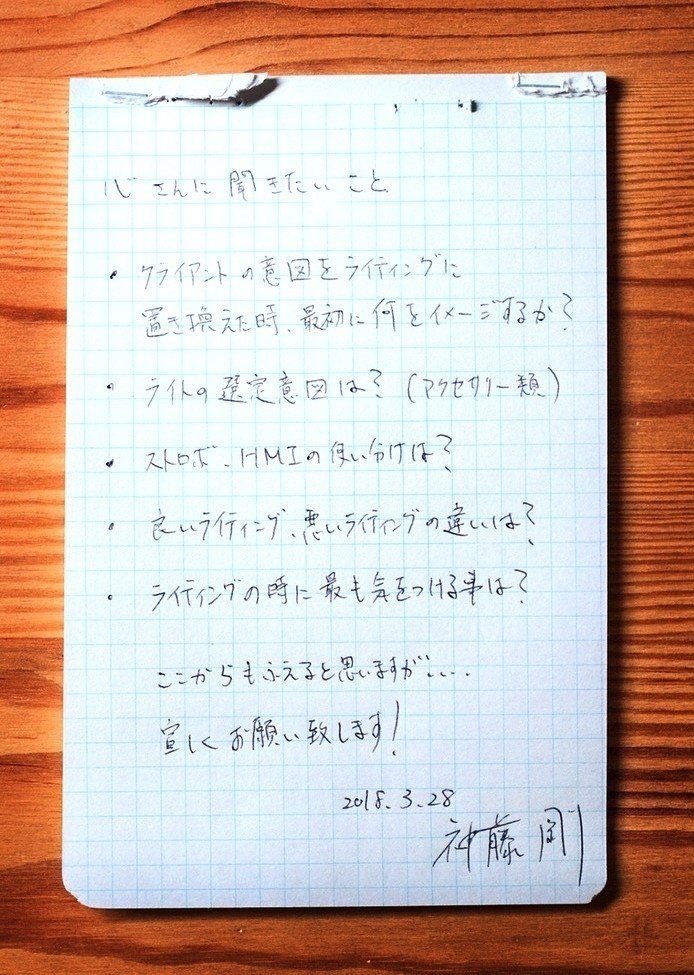 心さんに聞きたいこと
・クライアントの意図をライティングに
置き換えた時、最初に何をイメージするか?
・ライトの選定意図は?(アクセサリー類)
・ストロボ、HMIの使い分けは?
・良いライティング、悪いライティングの違いは?
・ライティングの時に最も気をつける事は?
ここからもふえると思いますが、...
宜しくお願い致します!
2018.3.28
神藤剛